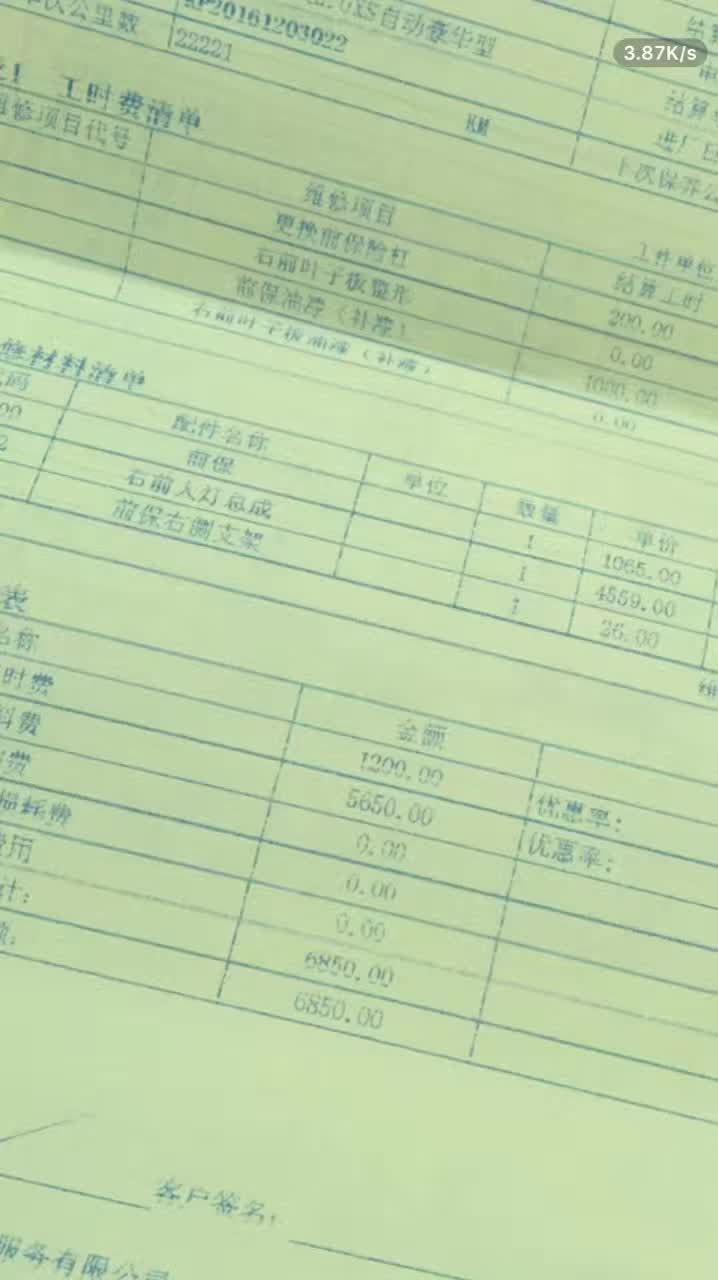 3.87K/s
2.0XS自动豪华型
RP20161203022
公里数 22221 KM
结算
进厂日
下次保养公
工时费清单
维修项目代号 维修项目 工件单位
更换前保险杠 结算工时
右前叶子板整形 200.00
前保油漆（补漆） 0.00
右前叶子板油漆（补漆） 1000.00
0.00
修材料清单
码 配件名称 单位 数量 单价
00 前保 1 1065.00
2 右前大灯总成 1 4559.00
前保右侧支架 1 26.00
表
名称 金额
时费 1200.00 优惠率：
料费 5650.00 优惠率：
费 0.00
损耗费 0.00
费用 0.00
计： 6850.00
6850.00
客户签名：
服务有限公司